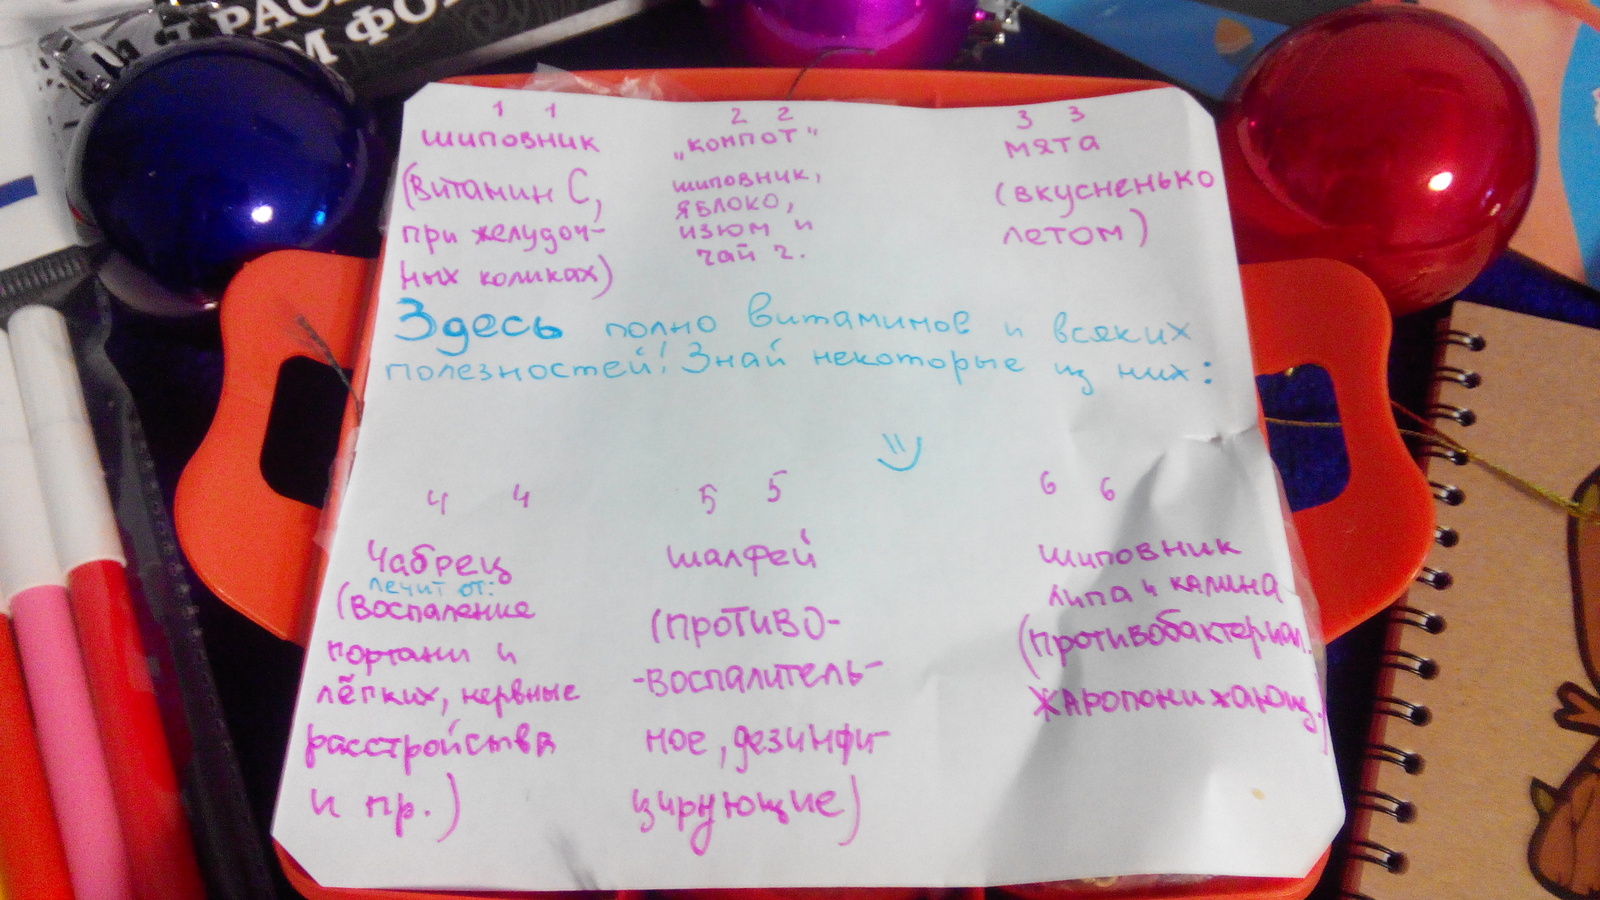 РАС
М ФО
1 1
шиповник
(витамин С,
при желудоч-
ных коликах)
2 2
„компот"
шиповник,
яблоко,
изюм и
чай ч.
3 3
мята
(вкусненько
летом)
Здесь полно витаминов и всяких
полезностей! Знай некоторые из них:
4 4
Чабрец
лечит от:
(воспаление
гортани и
лёгких, нервные
расстройства
и пр.)
5 5
шалфей
(противо-
-воспалитель-
ное, дезинфи-
цирующие)
6 6
шиповник
липа и калина
(противобактериал.
жаропонижающ.)